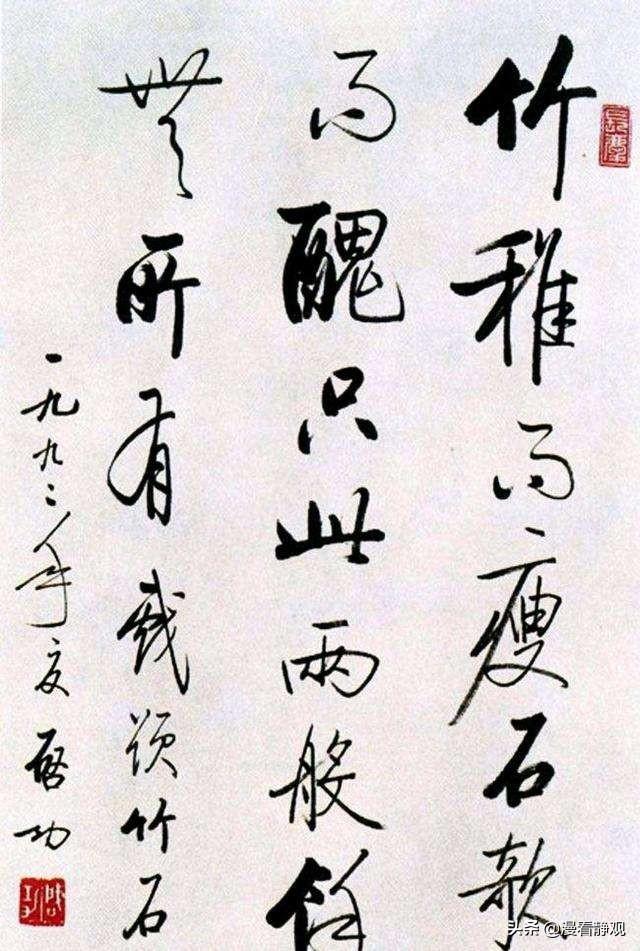 竹稚而瘦石欹
而醜只此兩般餘
無所有戲題竹石
一九九二年夏啓功
头条 @漫看静观